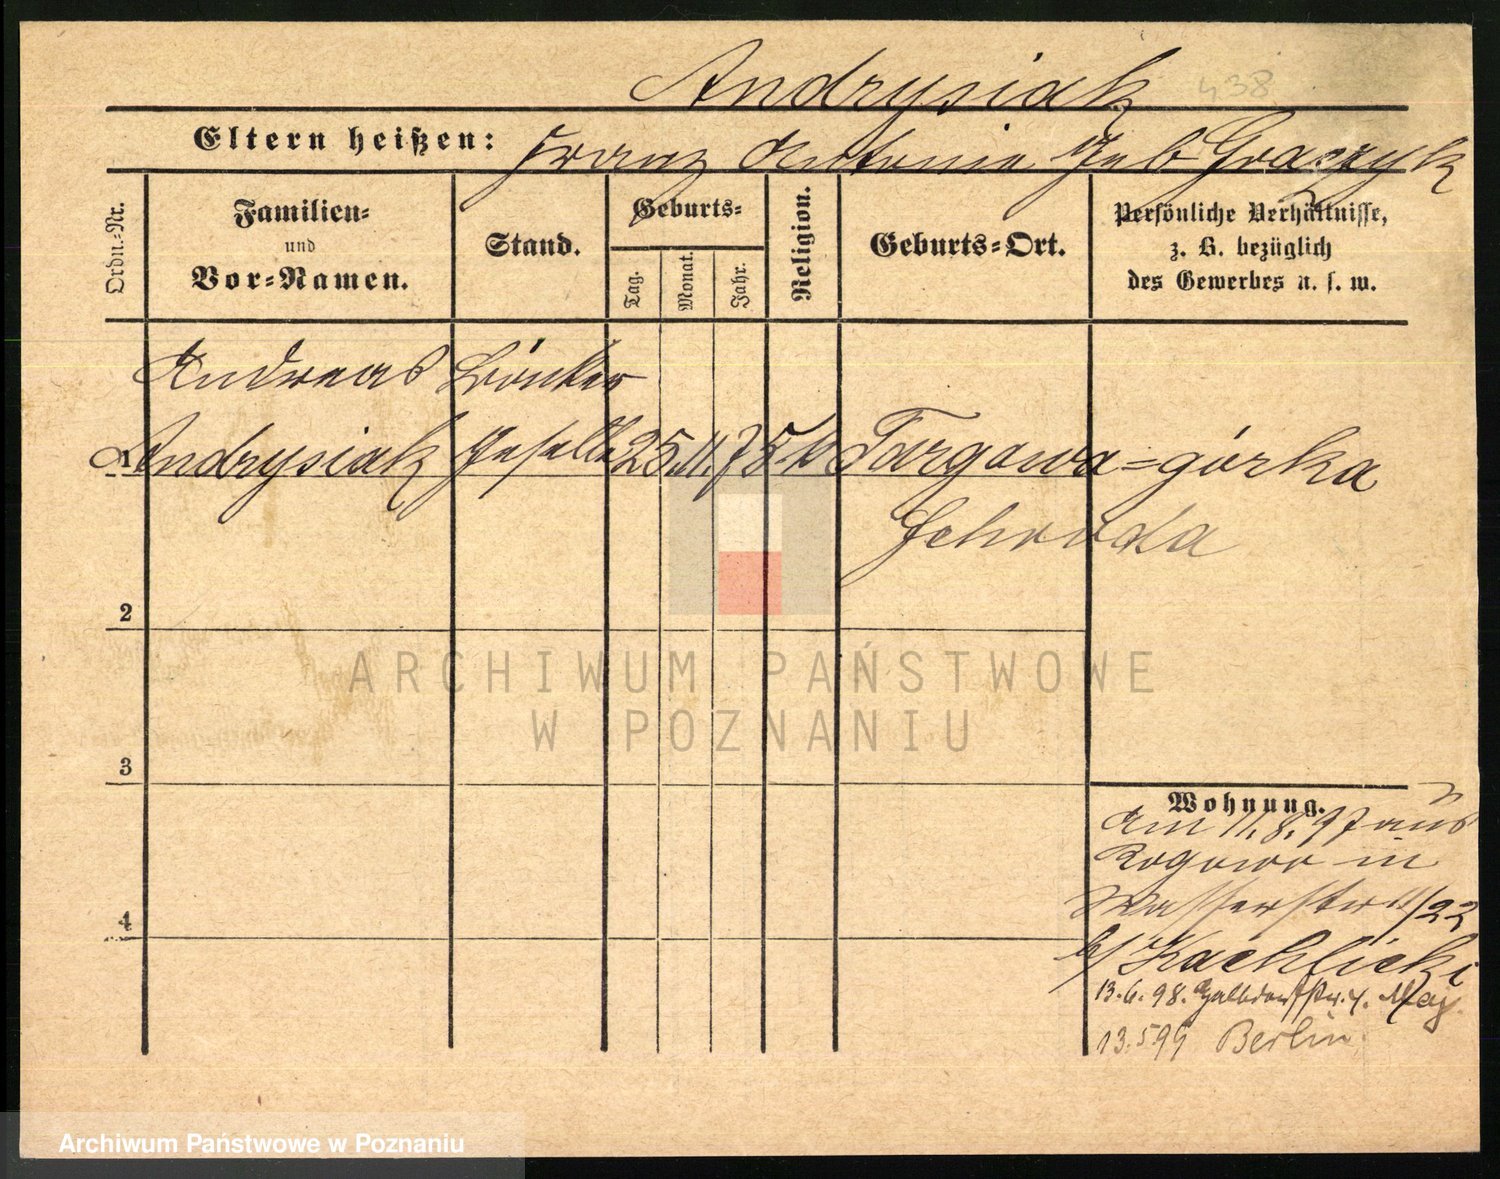 Andrysiak 438
Eltern heißen: Franz Antonie geb Graczyk
Ordn.-Nr.
Familien-
und
Vor-Namen.
Stand.
Geburts-
Tag.
Monat.
Jahr.
Religion.
Geburts-Ort.
Persönliche Verhältnisse,
z. B. bezüglich
des Gewerbes u. s. w.
Andreas
1 Andrysiak Geselle 25. 11. 75 k Targowa-górka
Schroda
2
3
4
Wohnung.
am 11.8.97 aus
Rogowo in
Wasserstr 22
b/ Kachlicki
13.6.98. 4. May.
13.5 99 Berlin.
ARCHIWUM PAŃSTWOWE
W POZNANIU
Archiwum Państwowe w Poznaniu